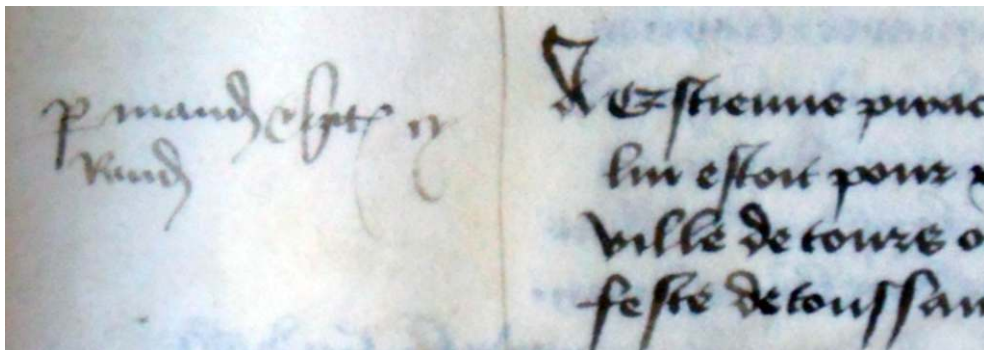 p mand & quict cy
Rand
A Estienne pinac
luy estoit pour
ville de tours o
feste de toussan